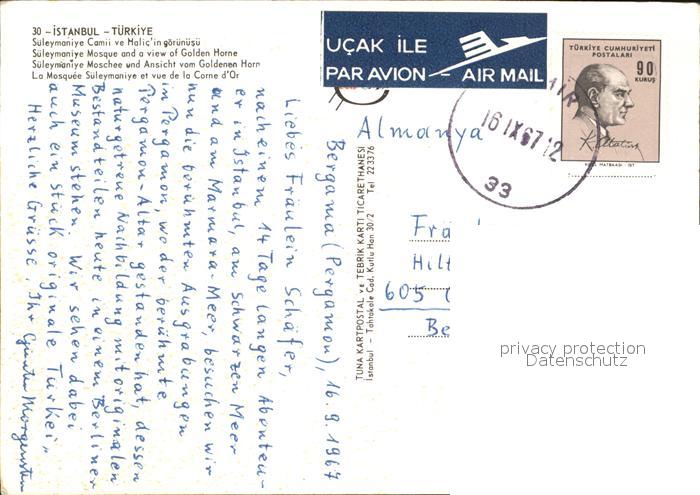 30 - İSTANBUL - TÜRKİYE
Süleymaniye Camii ve Haliç'in görünüşü
Süleymaniye Mosque and a view of Golden Horne
Süleymaniye Moschee und Ansicht vom Goldenen Horn
La Mosquée Süleymaniye et vue de la Corne d'Or
UÇAK İLE
PAR AVION - AIR MAIL
TÜRKİYE CUMHURİYETİ
POSTALARI
90
KURUŞ
K. Atatürk
16 IX 67 12
33
Almanya
Bergama (Pergamon), 16.9.1967
Liebes Fräulein Schäfer,
nach einem 14 Tage langen Abenteu-
er in Istanbul, am Schwarzen Meer
und am Marmara-Meer, besuchen wir
nun die berühmten Ausgrabungen
in Pergamon, wo der berühmte
Pergamon-Altar gestanden hat, dessen
naturgetreue Nachbildung mit originalen
Bestandteilen heute in einem Berliner
Museum stehen. Wir sehen dabei
auch ein Stück originale Türkei.
Herzliche Grüsse, Ihr Günter Morgenstern
TUNA KARTPOSTAL ve TEBRİK KARTI TİCARETHANESİ
İstanbul - Tahtakale Cad. Kutlu Han 30/2 Tel 223376
Frä
Hilt
605
Be
privacy protection
Datenschutz